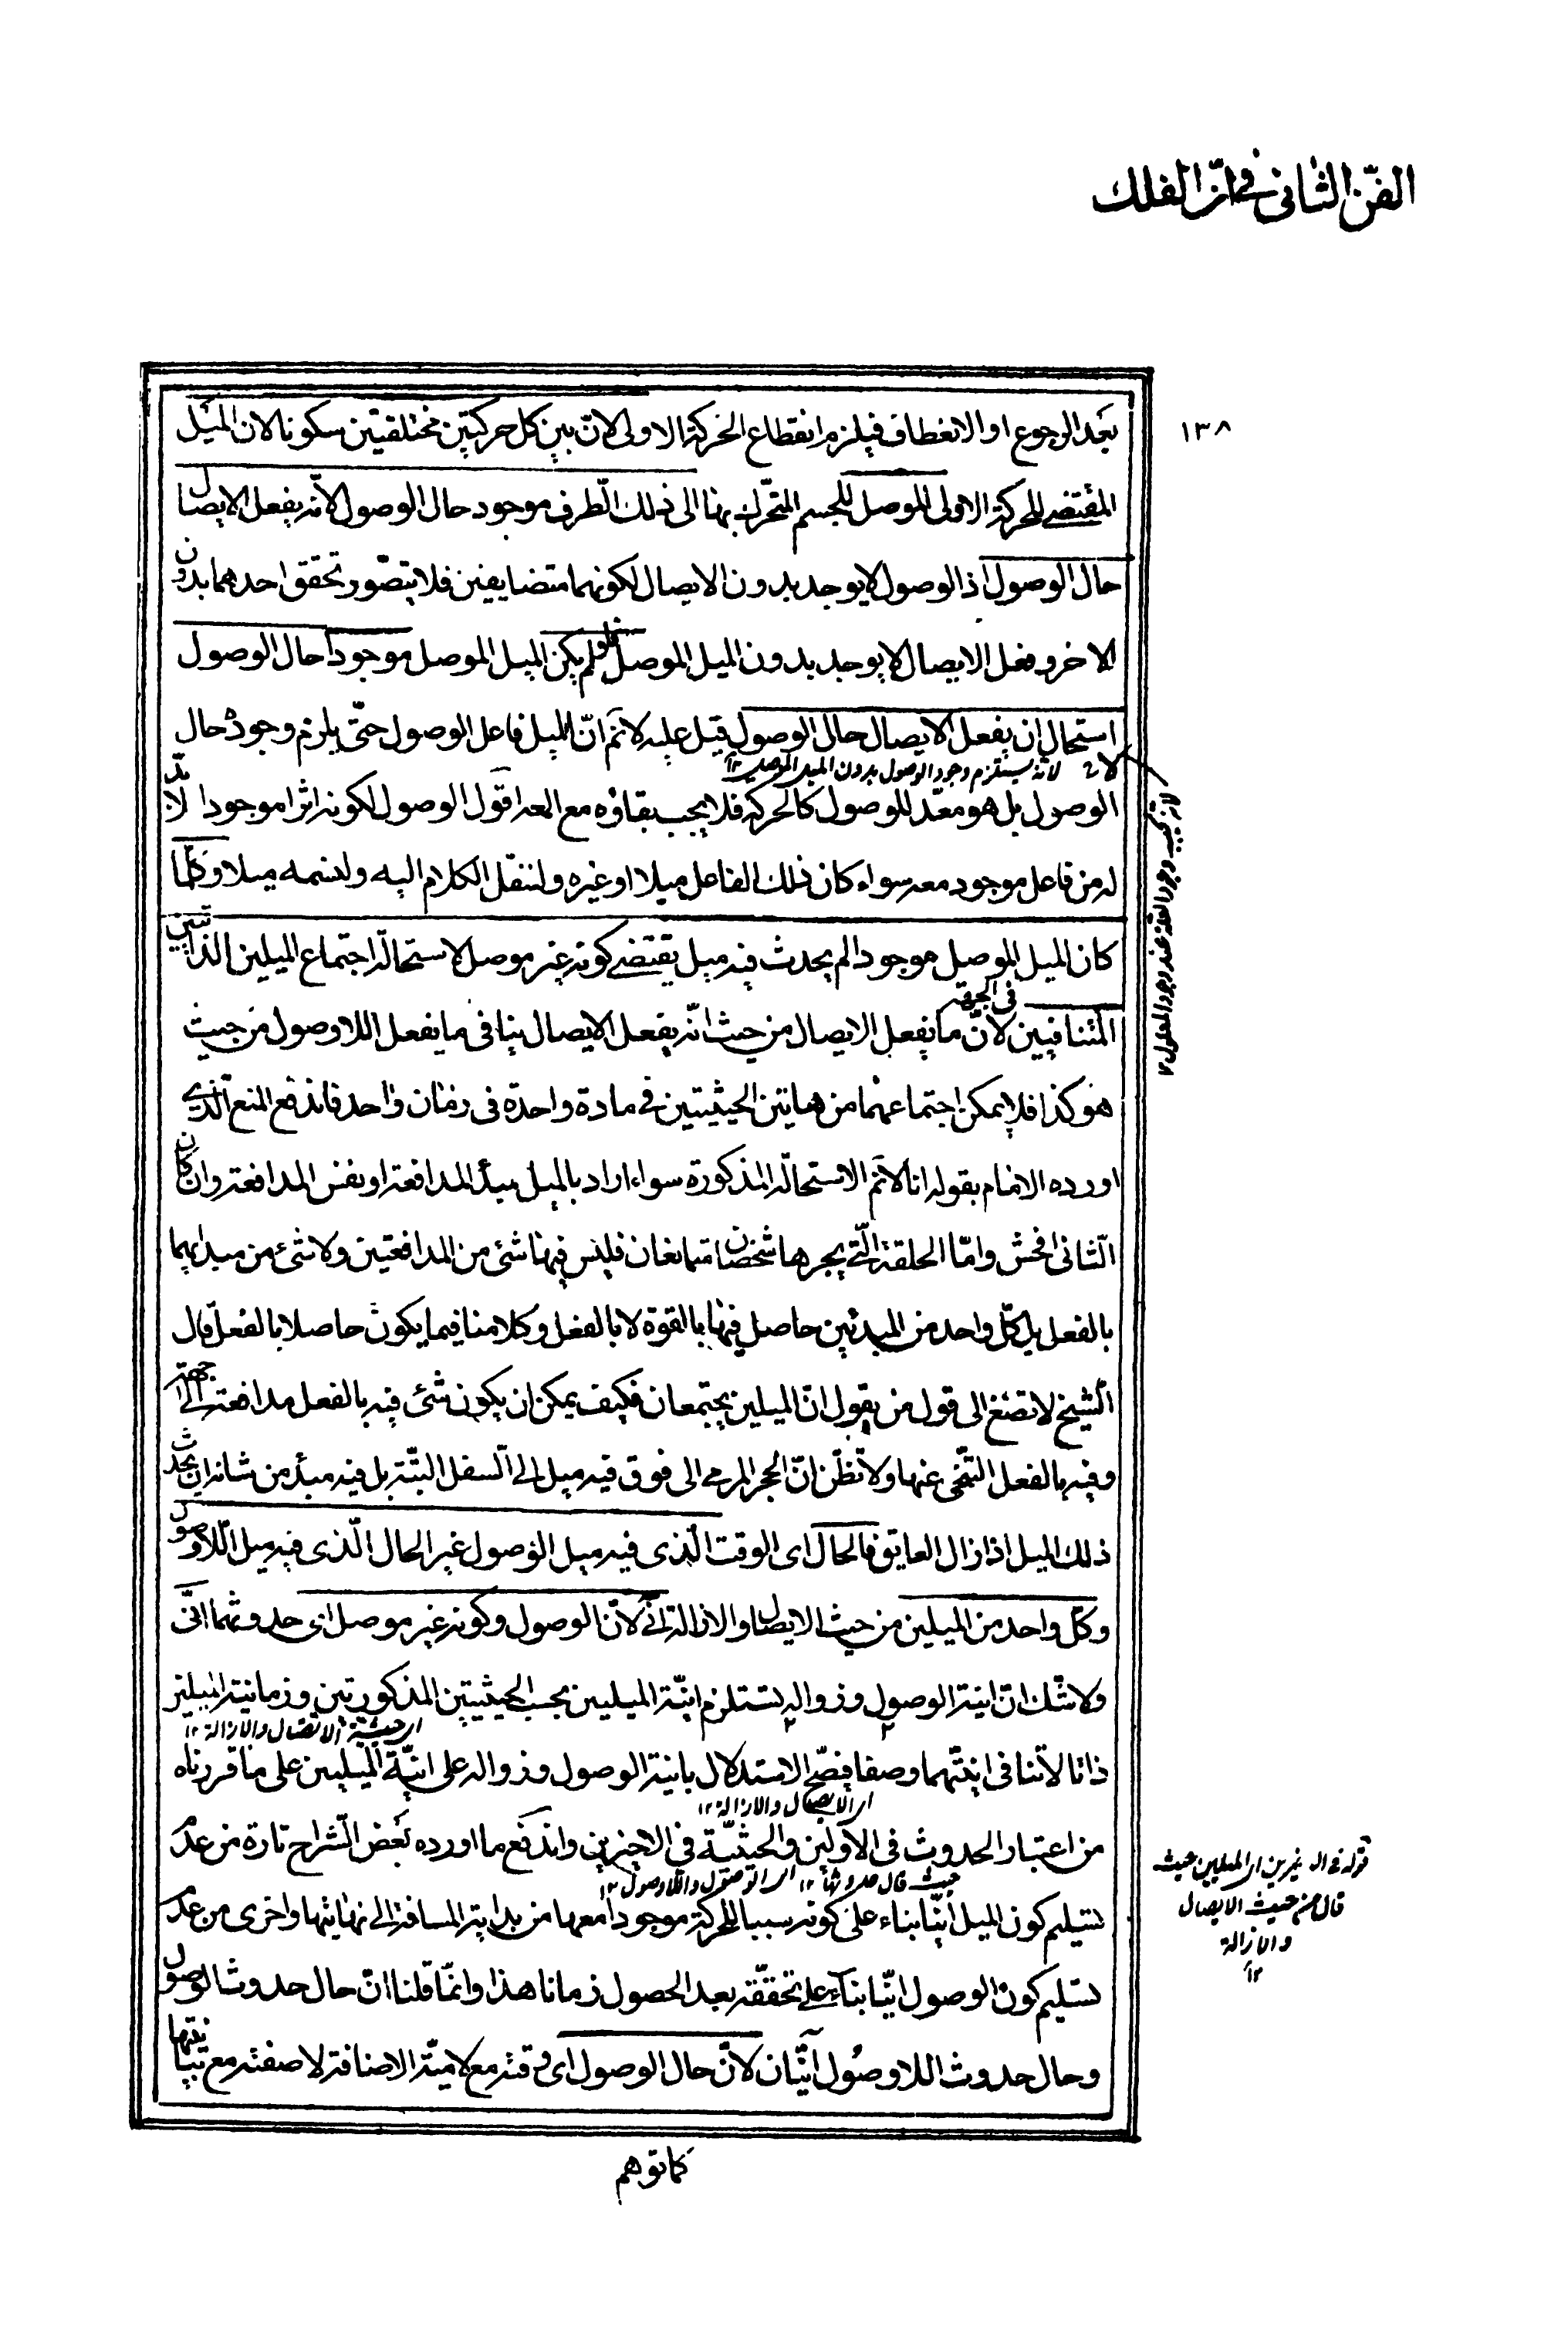 الفنّ الثانی فی انّ الفلک
١٣٨
بعد الرجوع او الانعطاف فیلزم انقطاع الحرکة الاولی لانّ بین کل حرکتین مختلفتین سکونا لان المیل
المقتضی للحرکة الاولی الموصل للجسم المتحرّک بها الی ذلک الطرف موجود حال الوصول لانّه یفعل الایصال
حال الوصول اذ الوصول لا یوجد بدون الایصال لکونهما متضایفین فلا یتصّور تحقق احدهما بدون
الاخر و فعل الایصال لا یوجد بدون المیل الموصل فلو لم یکن المیل الموصل موجودا حال الوصول
استحال ان یفعل الایصال حال الوصول قیل علیه لا نم انّ المیل فاعل الوصول حتّی یلزم وجوده حال
لانه یستلزم وجود الوصول بدون المیل الموصل ١٢
الوصول بل هو معدّ للوصول کالحرکة فلا یجب بقاؤه معه اقول الوصول لکونه اثرا موجودا لا بدّ
له من فاعل موجود معه سواء کان ذلک الفاعل میلا او غیره و لننقل الکلام الیه و لنسمه میلا و کلّما
کان المیل الموصل موجودا لم یحدث فیه میل یقتضی کونه غیر موصل لاستحالة اجتماع المیلین الذاتیین
فی الجهة
المتنافیین لانّ ما یفعل الایصال من حیث انّه یفعل الایصال ینافی ما یفعل اللاوصول من حیث
هو کذا فلا یمکن اجتماعهما من هاتین الحیثیتین فی مادة واحدة فی زمان واحد فاندفع المنع الّذی
اورده الامام بقوله انا لا نم الاستحالة المذکورة سواء اراد بالمیل مبدأ المدافعة او نفس المدافعة و ان کان
الثانی افحش و امّا الحلقة الّتی یجرها شخصان متمانعان فلیس فیها شئ من المدافعتین و لا شئ من مبدایهما
بالفعل بل کلّ واحد من المبدئین حاصل فیها بالقوة لا بالفعل و کلامنا فیما یکون حاصلا بالفعل قال
الشیخ لا تصغ الی قول من یقول انّ المیلین یجتمعان فکیف یمکن ان یکون شئ فیه بالفعل مدافعة الی جهة
و فیه بالفعل التنحّی عنها و لا تظنّ انّ الحجر المرمی الی فوق فیه میل الی السفل البتّة بل فیه مبدأ من شانه ان یحدث
ذلک المیل اذا زال العایق فالحال ای الوقت الّذی فیه میل الوصول غیر الحال الّذی فیه میل اللاوصول
و کلّ واحد من المیلین من حیث الایصال و الازالة انّی لانّ الوصول و کونه غیر موصل ای حدوثهما انّی
و لا شکّ انّ انیة الوصول و زواله یستلزم انیّة المیلین بحسب الحیثیتین المذکورتین و زمانیة المیلین
ای حیثیة الاتصال و الازالة ١٢
ذاتا لا تنافی انیّتهما وصفا فیصّح الاستدلال بانیة الوصول و زواله علی انیّة المیلین علی ما قررناه
ای الایصال و الازالة ١٢
من اعتبار الحدوث فی الاولین و الحیثیّة فی الاخیرین و اندفع ما اورده بعض الشراح تارة من عدم
حیث قال حدوثهما ١٢ ای الوصول و اللاوصول ١٢
تسلیم کون المیل انیّا بناء علی کونه سببا للحرکة موجودا معها من بدایة المسافة الی نهایتها و اخری من عدم
تسلیم کون الوصول انیّا بناء علی تحققه بعد الحصول زمانا هذا و انمّا قلنا انّ حال حدوث الوصول
و حال حدوث اللاوصول انیّان لانّ حال الوصول ای وقته مع لامیّة الاضافة لا صفته مع بیانیتها
کما توهم
قوله فی الاخیرین ای المیلین حیث
قال من حیث الایصال
و الازالة
١٢